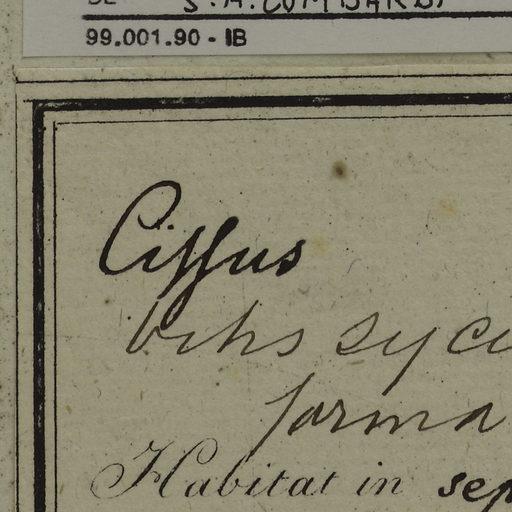 S. A. COMBARDI
99.001.90 - IB
Cissus
vitis syci
forma
Habitat in sep